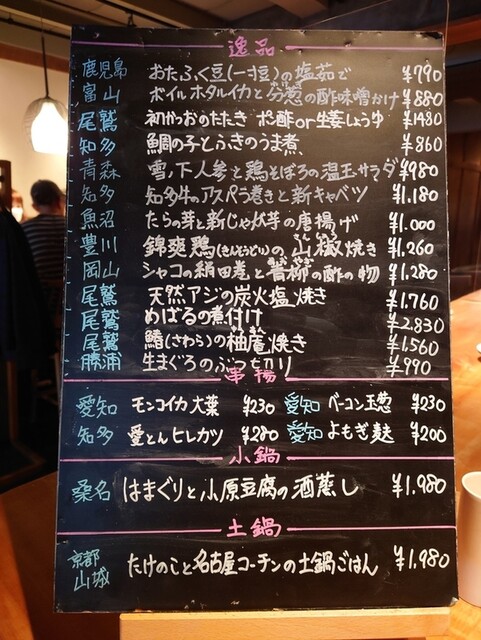 逸品
鹿児島 おたふく豆(一寸豆)の塩茹で ¥790
富山 ボイルホタルイカと分葱の酢味噌かけ ¥880
尾鷲 初かつおのたたき ポン酢or生姜しょうゆ ¥1480
知多 鯛の子とふきのうま煮 ¥860
青森 雪ノ下人参と鶏そぼろの温玉サラダ ¥980
知多 知多牛のアスパラ巻きと新キャベツ ¥1.180
魚沼 たらの芽と新じゃが芋の唐揚げ ¥1.000
豊川 錦爽鶏(きんそうどり)の山椒焼き ¥1.260
岡山 シャコの絹田巻と青柳の酢の物 ¥1.280
尾鷲 天然アジの炭火塩焼き ¥1.760
尾鷲 めばるの煮付け ¥2.830
尾鷲 鰆(さわら)の柚庵焼き ¥1.560
勝浦 生まぐろのぶつ切り ¥990
串揚
愛知 モンゴイカ大葉 ¥230 愛知 ベーコン玉葱 ¥230
知多 愛とんヒレカツ ¥280 愛知 よもぎ麩 ¥200
小鍋
桑名 はまぐりと小原豆腐の酒蒸し ¥1.980
土鍋
京都山城 たけのこと名古屋コーチンの土鍋ごはん ¥1.980